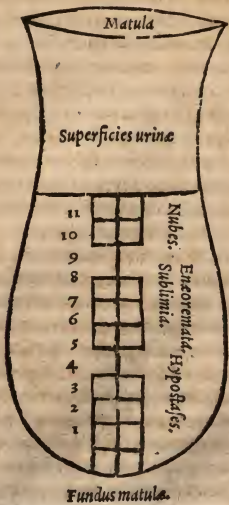 Matula
Superficies urinæ
11
10
9
8
7
6
5
4
3
2
1
Nubes. Sublimia.
Enæoremata. Hypostases.
Fundus matulæ.